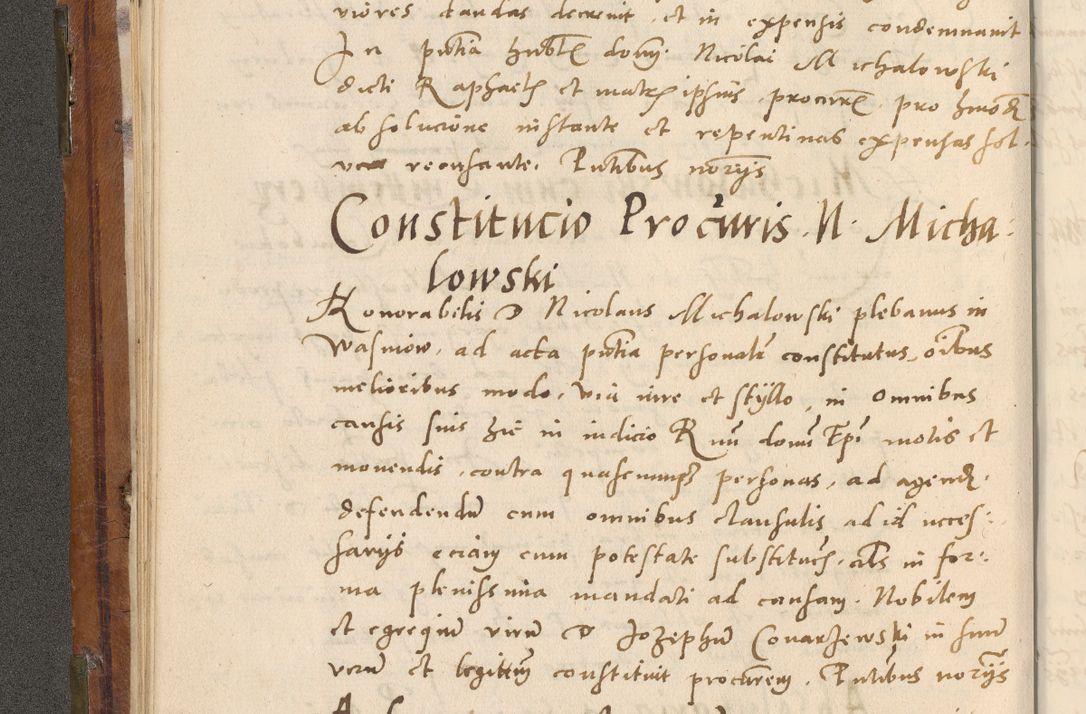 viores dandas decrevit, et in expensis condemnavit
In pñtia hñbt̃ domi. Nicolai Michalowski
dicti Raphaelis et matris ipsius, procurẽ, pro hmõdi
absolucione instante et repentinas expensas sol-
vere recusante. Pñtibus noriis
Constitucio Procuris N. Micha:
lowski
Honorabilis D Nicolaus Michalowski plebanus in
Wasniow, ad acta pñtia personalr̃ constitutus, oĩbus
melioribus modo, via iure et styllo, in omnibus
causis suis hic in iudicio Rmi domi Epi motis et
movendis, contra quascumqz personas, ad agend.
defendendũ cum omnibus clausulis ad id neces:
sariis eciam cum potestate substituen. als in for:
ma plenissima mandati ad causam. Nobilem
et egregiũ virũ D Iozephũ Conarzewski in suũ
verũ et legittimũ constituit procurem. Pñtibus noriis